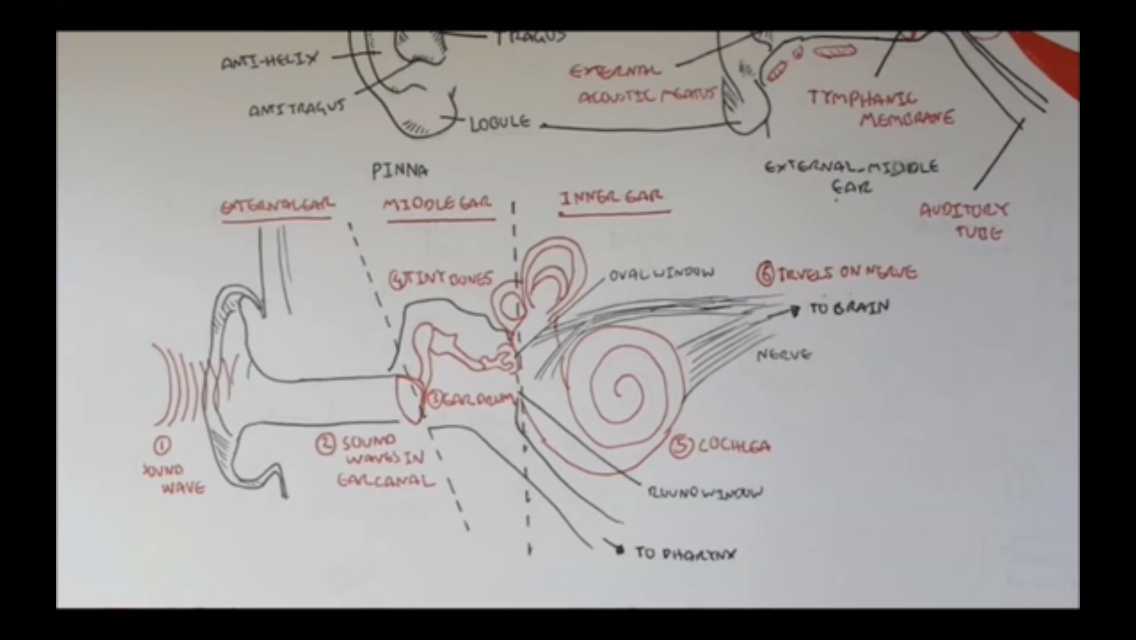 TRAGUS
ANTI-HELIX
ANTITRAGUS
LOBULE
EXTERNAL
ACOUSTIC MEATUS
TYMPHANIC
MEMBRANE
PINNA
EXTERNAL-MIDDLE
EAR
AUDITORY
TUBE
EXTERNAL EAR
MIDDLE EAR
INNER EAR
④ TINY BONES
OVAL WINDOW
⑥ TRVELS ON NERVE
TO BRAIN
NERVE
③ EAR DRUM
① SOUND
WAVE
② SOUND
WAVES IN
EAR CANAL
⑤ COCHLEA
ROUND WINDOW
TO PHARYNX